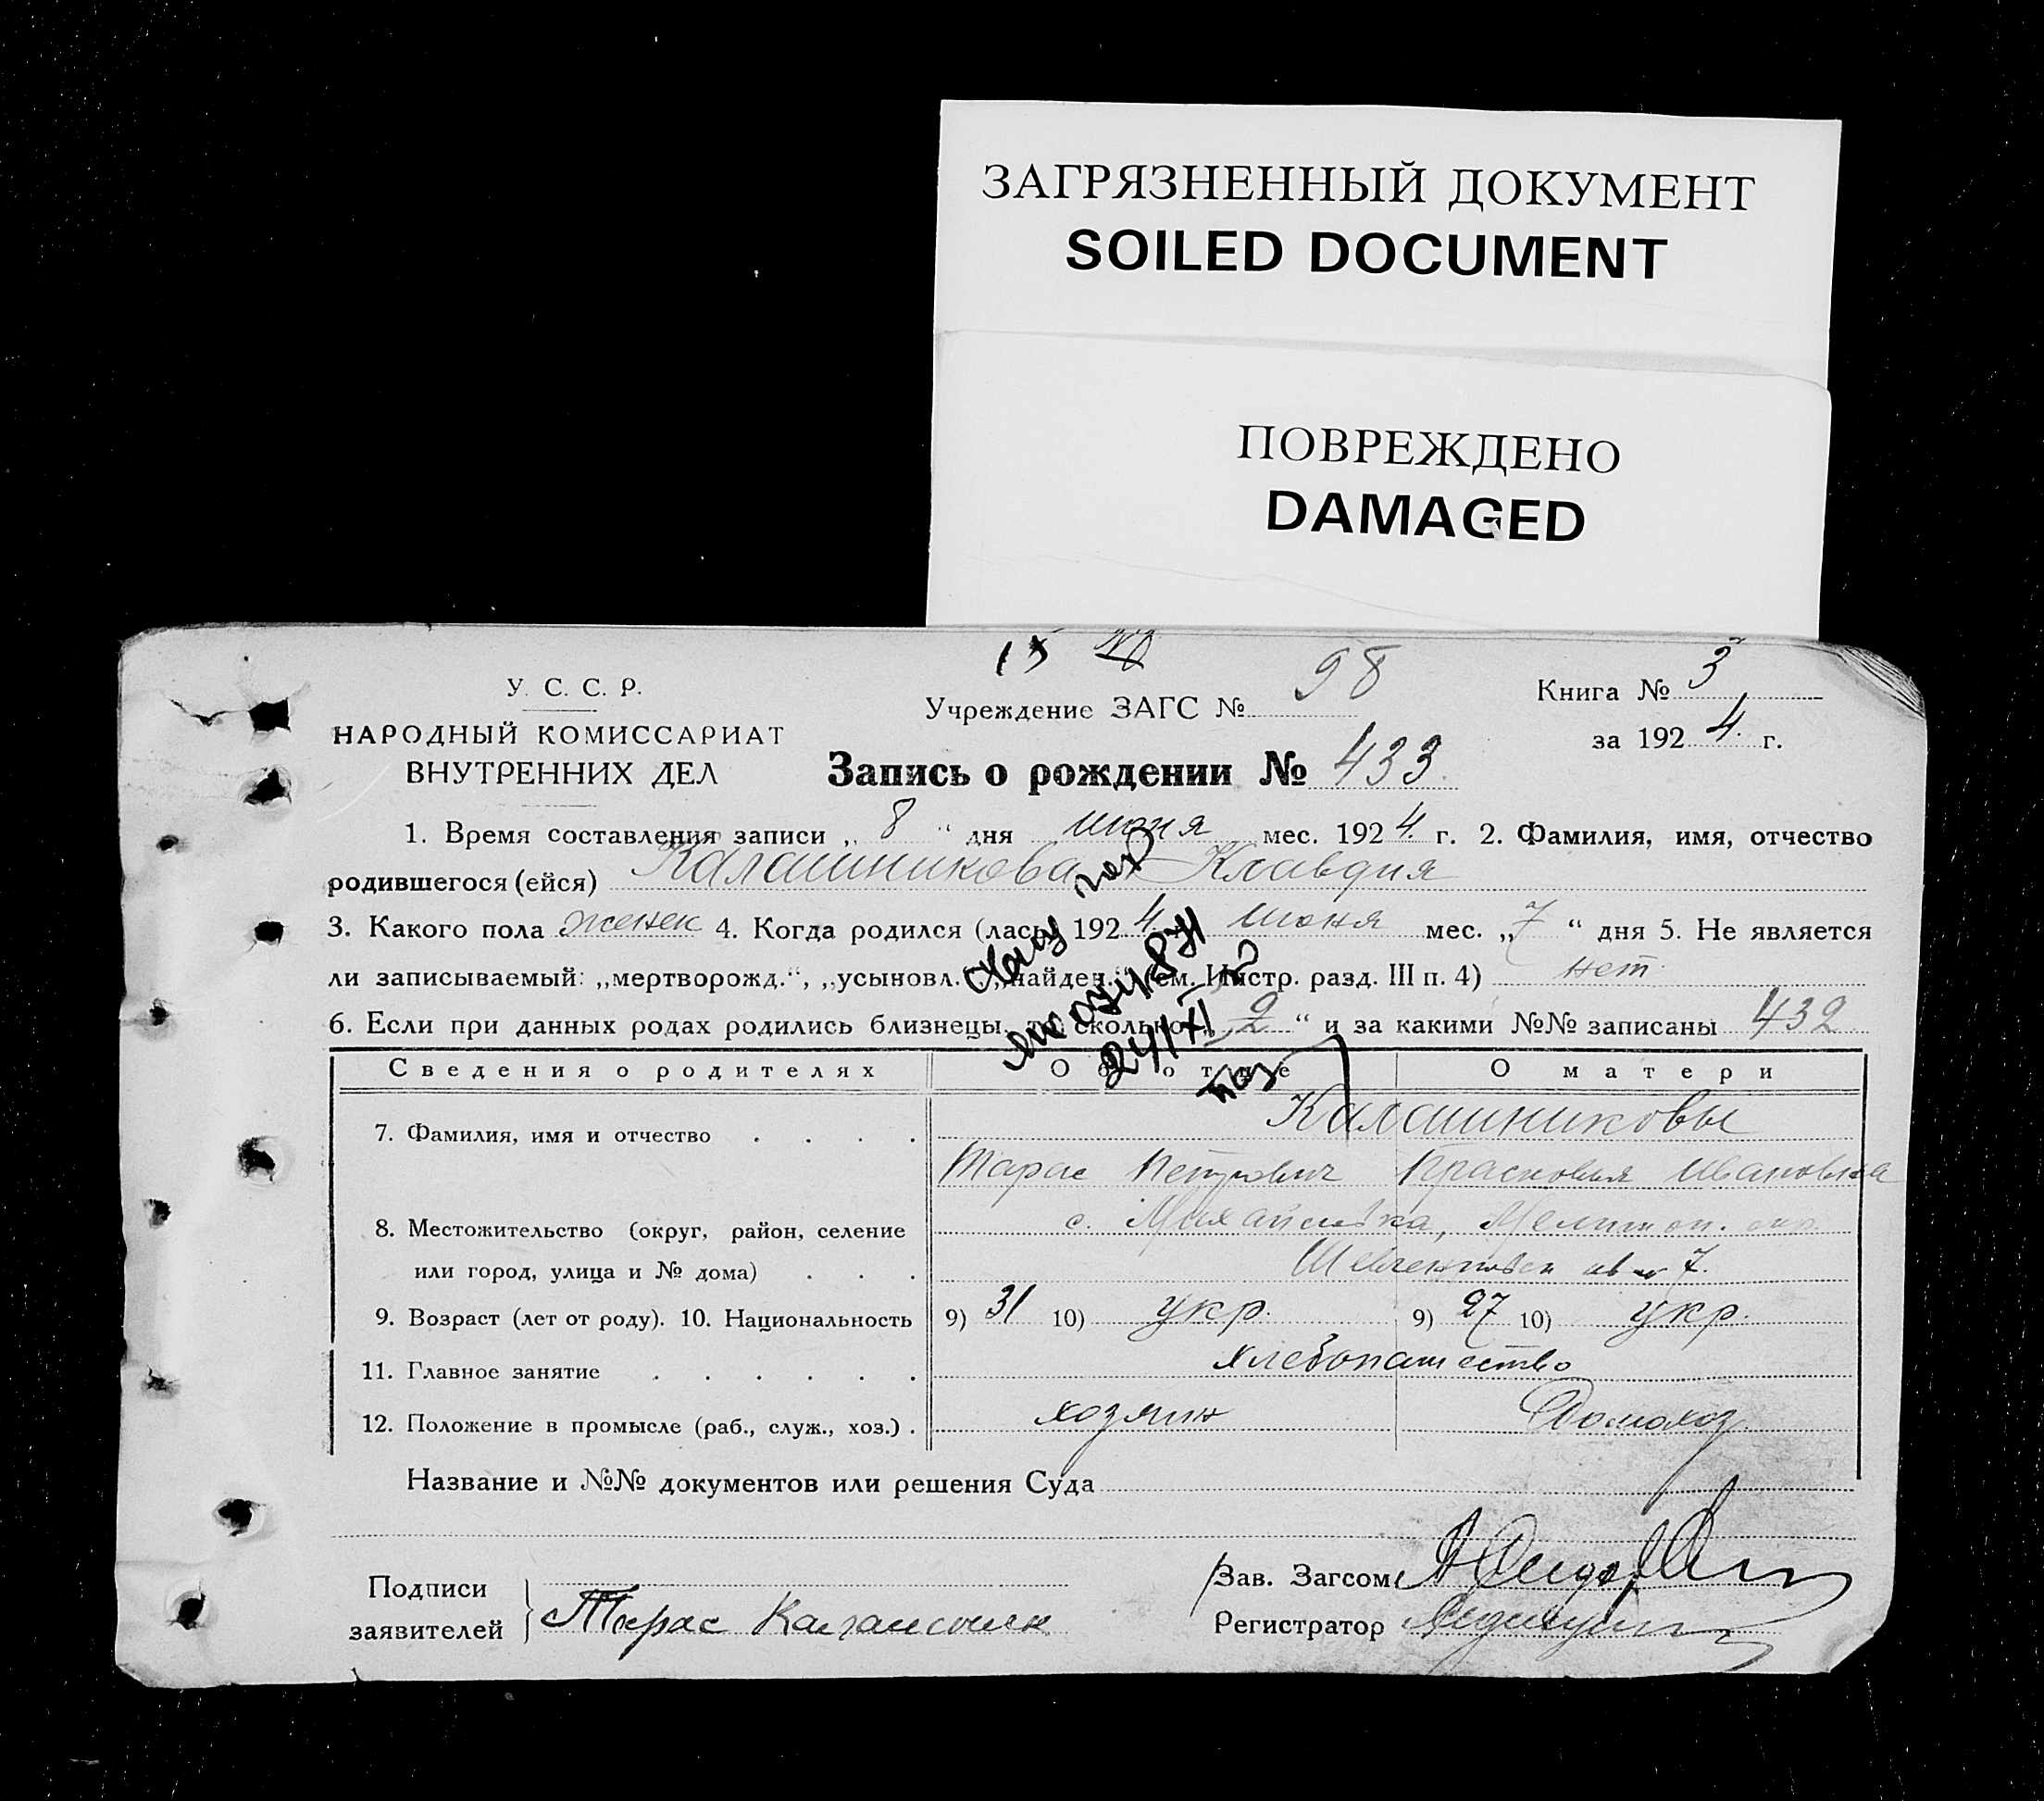 ЗАГРЯЗНЕННЫЙ ДОКУМЕНТ
SOILED DOCUMENT
ПОВРЕЖДЕНО
DAMAGED
15
У. С. С. Р.
НАРОДНЫЙ КОМИССАРИАТ
ВНУТРЕННИХ ДЕЛ
Учреждение ЗАГС № 98
Книга № 3
за 1924 г.
Запись о рождении № 433
1. Время составления записи „ 8 “ дня июня мес. 1924. г. 2. Фамилия, имя, отчество
родившегося (ейся) Калашникова Клавдия
3. Какого пола женск 4. Когда родился (лась) 1924 июня мес. „ 7 “ дня 5. Не является
ли записываемый: „мертворожд.“, „усыновл.“, „найден.“ (см. Инстр. разд. III п. 4) нет
6. Если при данных родах родились близнецы, то сколько „ 2 “ и за какими №№ записаны 432
24/XI
Сведения о родителях
Об отце
О матери
7. Фамилия, имя и отчество . . . .
Калашниковы
Тарас Петрович Прасковья Ивановна
8. Местожительство (округ, район, селение
или город, улица и № дома) . . .
с. Михайловка, Мелитоп. окр.
7.
9. Возраст (лет от роду). 10. Национальность 9) 31 10) укр. 9) 27 10) укр.
11. Главное занятие . . . . . . хлебопашество
12. Положение в промысле (раб., служ., хоз.) . хозяин Домохоз.
Название и №№ документов или решения Суда
Подписи
заявителей
Тарас
Зав. Загсом
Регистратор